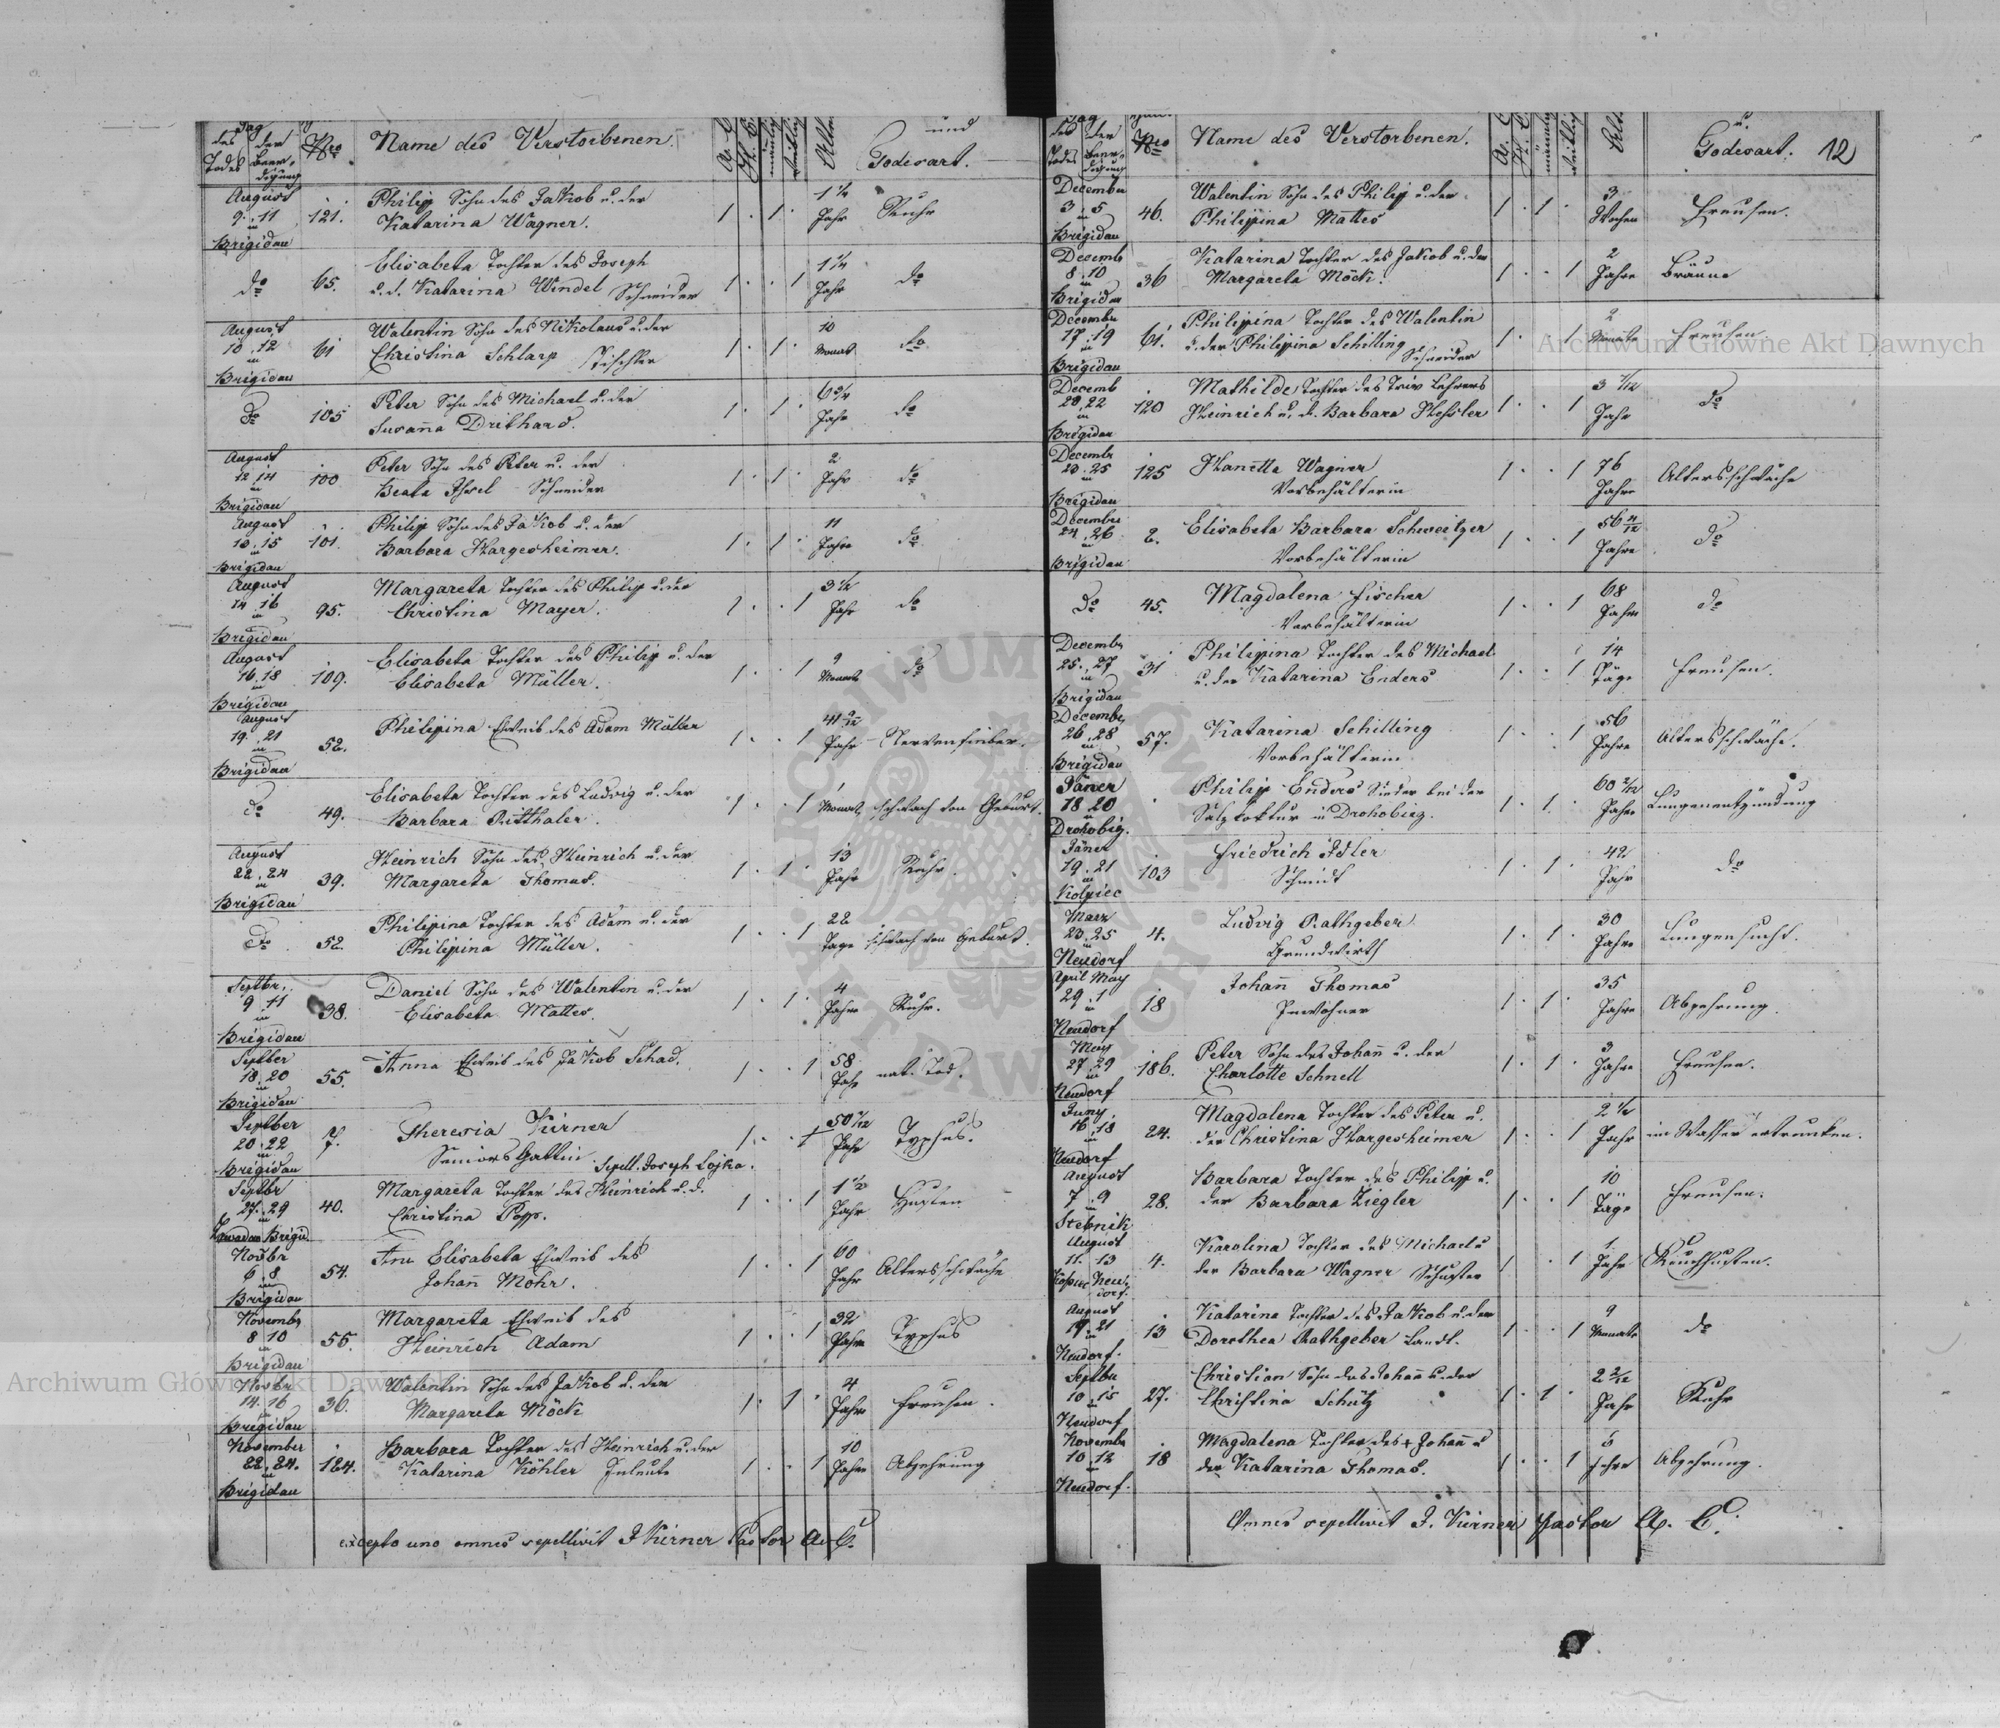 Tag
des der
Todes Beerdigung
Nro
Name des Verstorbenen.
A. C.
H. C.
männlich
weiblich
Alter
und
Todesart.
August
9. 11
in
Brigidau
121.
Philipp Sohn des Jakob u. der
Katarina Wagner.
1 1
1 1/4
Jahr
Ruhr
do
65.
Elisabeta Tochter des Joseph
u. d. Katarina Windel Schneider
1 1
1 1/4
Jahr
do
August
10. 12
in
Brigidau
61
Walentin Sohn des Nikolaus u. der
Christina Schlarp Tischler
1 1
10
Monat
do
do
105
Peter Sohn des Michael u. der
Susanna Drithard.
1 1
6 3/4
Jahr
do
August
12. 14
in
Brigidau
100
Peter Sohn des Peter u. der
Beata Schneider
1 1
2
Jahr
do
August
13. 15
in
Brigidau
101.
Philipp Sohn des Jakob u. der
Barbara Hargesheimer.
1 1
11
Jahre
do
August
14. 16
in
Brigidau
95.
Margareta Tochter des Philipp u. der
Christina Mayer.
1 1
3 1/2
Jahr
do
August
16. 18
in
Brigidau
109.
Elisabeta Tochter des Philipp u. der
Elisabeta Müller.
1 1
9
Monat
do
August
19. 21
in
Brigidau
52.
Philipina Eheweib des Adam Müller
1 1
Jahr
Nervenfieber.
do
49.
Elisabeta Tochter des Ludwig u. der
Barbara Ritthaler.
1 1
1
Monat
schwach von Geburt.
August
22. 24
in
Brigidau
39.
Heinrich Sohn des Heinrich u. der
Margareta Thomas.
1 1
13
Jahr
Ruhr.
do
52.
Philipina Tochter des Adam u. der
Philipina Müller.
1 1
22
Tage
schwach von Geburt.
Septbr.
9. 11
in
Brigidau
38.
Daniel Sohn des Walentin u. der
Elisabeta Mattes.
1 1
4
Jahre
Ruhr.
Septber
18. 20
in
Brigidau
55.
Anna Eheweib des Jakob Schad.
1 1
58
Jahr
nat. Tod.
Septber
20. 22
in
Brigidau
7.
Theresia Kirner
Seniors Gattin Sepell. Joseph Lojka.
1 1
50 1/12
Jahr
Typhus.
Septbr
27. 29
in
Brigid.
40.
Margareta Tochter des Heinrich u. d.
Christina Popp.
1 1
1 1/2
Jahr
Husten
Novbr
6. 8
in
Brigidau
54.
Ana Elisabeta Eheweib des
Johann Mohr.
1 1
60
Jahr
Altersschwäche
Novembr
8. 10
in
Brigidau
55.
Margareta Eheweib des
Heinrich Adam
1 1
32
Jahre
Typhus
Novbr
14. 16
in
Brigidau
36.
Walentin Sohn des Jakob u. der
Margareta Möck
1 1
4
Jahre
Freusen.
November
22. 24.
in
Brigidau
124.
Barbara Tochter des Heinrich u. der
Katarina Köhler Inleute
1 1
10
Jahre
Abzehrung
excepto uno omnes sepellivit J Kirner Pastor A. C.
Tag
des der
Todes Beerdigung
Nro
Name des Verstorbenen.
A. C.
H. C.
männlich
weiblich
Alter
u.
Todesart.
12
December
3. 5
in
Brigidau
46.
Walentin Sohn des Philipp u. der
Philipina Mattes
1 1
3
Wochen
Freusen.
Decemb
8. 10
in
Brigidau
36
Katarina Tochter des Jakob u. der
Margareta Möck.
1 1
2
Jahre
Bräune
Decembr
17. 19
in
Brigidau
61.
Philipina Tochter des Walentin
u. der Philipina Schilling
Schneider
1 1
2
Monate
Freusen
Decemb
20. 22
in
Brigidau
120
Mathilde Tochter des Triv Lehrers
Heinrich u. d. Barbara Hessler
1 1
Jahr
do
Decembr
23. 25
in
Brigidau
125
Hanetta Wagner
Vorbehälterin
1 1
76
Jahre
Altersschwäche
December
24. 26
in
Brigidau
2.
Elisabeta Barbara Schweitzer
Vorbehälterin
1 1
Jahre
do
do
45.
Magdalena Fischer
Vorbehälterin
1 1
68
Jahre
do
Decembr
25. 27
in
Brigidau
31
Philipina Tochter des Michael
u. der Katarina Enders
1 1
14
Täge
Freusen.
Decembr
26. 28
in
Brigidau
57.
Katarina Schilling
Vorbehälterin
1 1
56
Jahre
Altersschwäche.
Jäner
18. 20
in
Drohobiz.
Philipp Enders Sieder bei der
Salzkoktur in Drohobicz.
1 1
60 2/12
Jahre
Lungenentzündung
Jäner
19. 21
in
Kolpiec
103
Friedrich Idler
Schmidt
1 1
42
Jahr
do
Marz
23. 25
in
Neudorf
4.
Ludwig Rathgeber
Grundwirth
1 1
30
Jahre
Lungensucht.
April May
29. 1
in
Neudorf
18
Johann Thomas
Inwohner
1 1
35
Jahre
Abzehrung.
May
27. 29
in
Neudorf
186.
Peter Sohn des Johann u. der
Charlotte Schnell
1 1
3
Jahre
Freusen.
Juny
16. 18
in
Neudorf
24.
Magdalena Tochter des Peter u.
der Christina Hargesheimer
1 1
2 1/2
Jahr
im Wasser ertrunken.
August
7. 9
in
Stebnik
28.
Barbara Tochter des Philipp u.
der Barbara Ziegler
1 1
10
Täge
Freusen.
August
11. 13
Kolpiec Neudorf.
4.
Karolina Tochter des Michael u
der Barbara Wagner Schuster
1 1
1
Jahr
Keuchhusten.
August
19. 21
in
Neudorf.
13
Katarina Tochter des Jakob u. der
Dorothea Rathgeber Landl.
1 1
9
Monate
do
Septbr
10. 15
in
Neudorf
27.
Christian Sohn des Johann u. der
Christina Schütz
1 1
2 2/12
Jahr
Ruhr
Novembr
10. 12
in
Neudorf.
18
Magdalena Tochter des + Johann u
der Katarina Thomas.
1 1
5
Jahre
Abzehrung.
Omnes sepellivit J. Kirner Pastor A. C.
Archiwum Główne Akt Dawnych
Archiwum Główne Akt Dawnych
ARCHIWUM GŁÓWNE AKT DAWNYCH